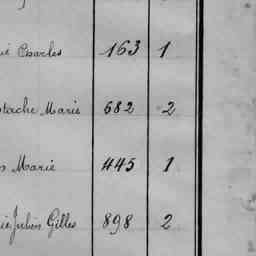 Charles 163 1
stache Marie 682 2
Marie 445 1
Julien Gilles 898 2